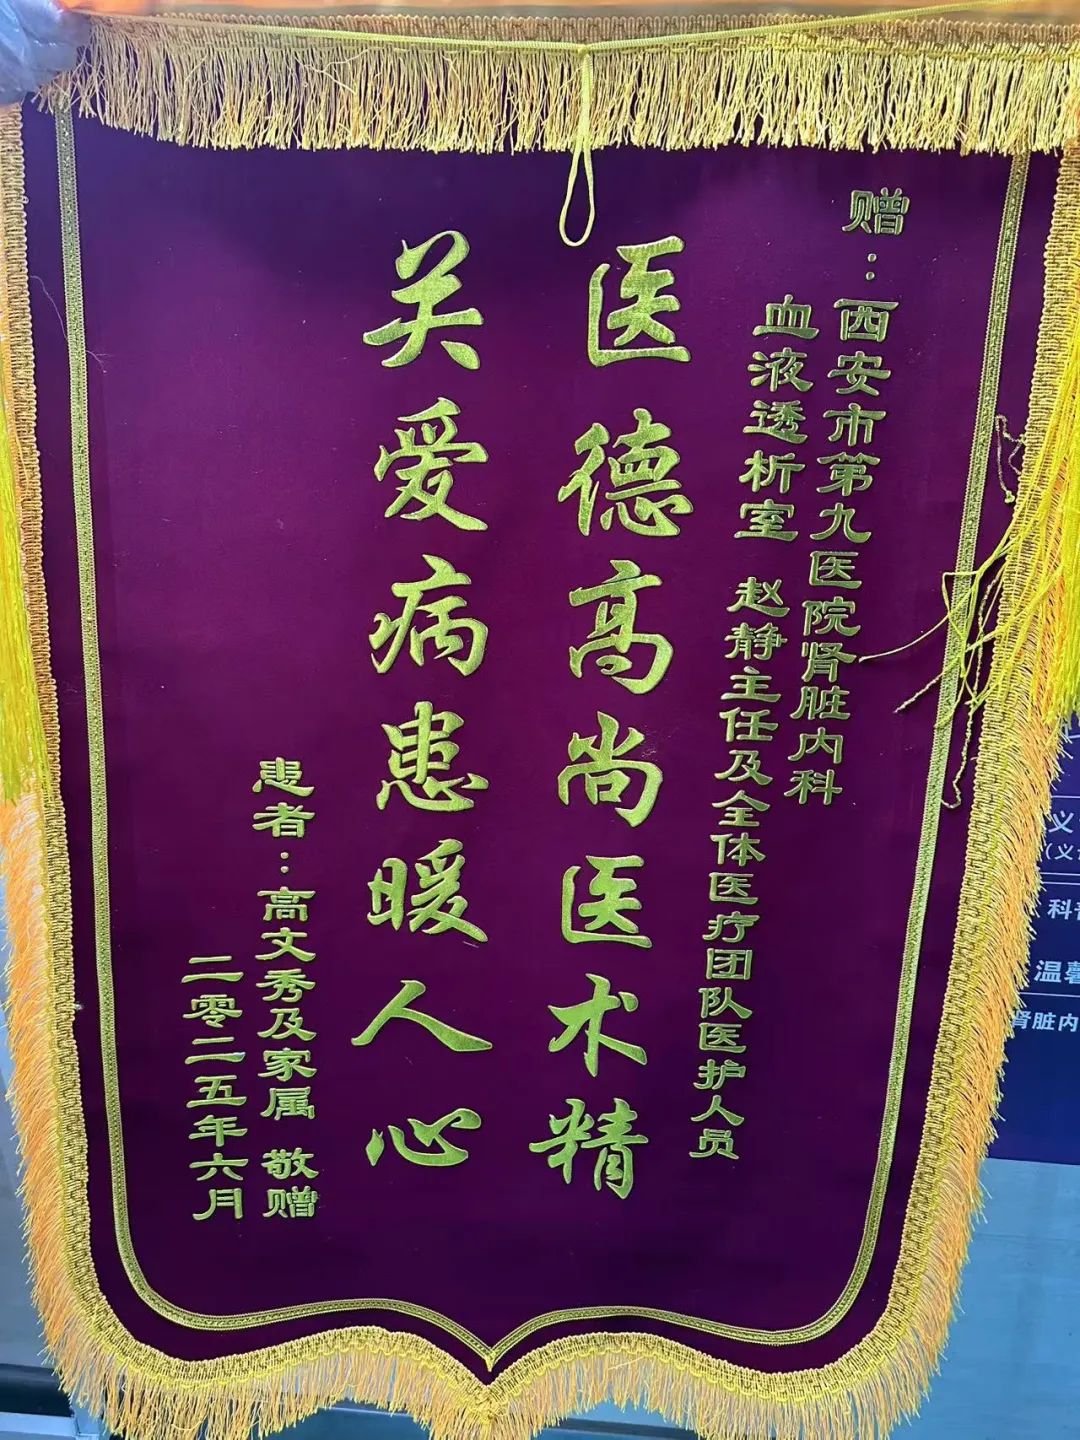 赠：西安市第九医院肾脏内科
血液透析室 赵静主任及全体医疗团队医护人员
医德高尚医术精
关爱病患暖人心
患者：高文秀及家属 敬赠
二零二五年六月
义
科普
温馨
肾脏内